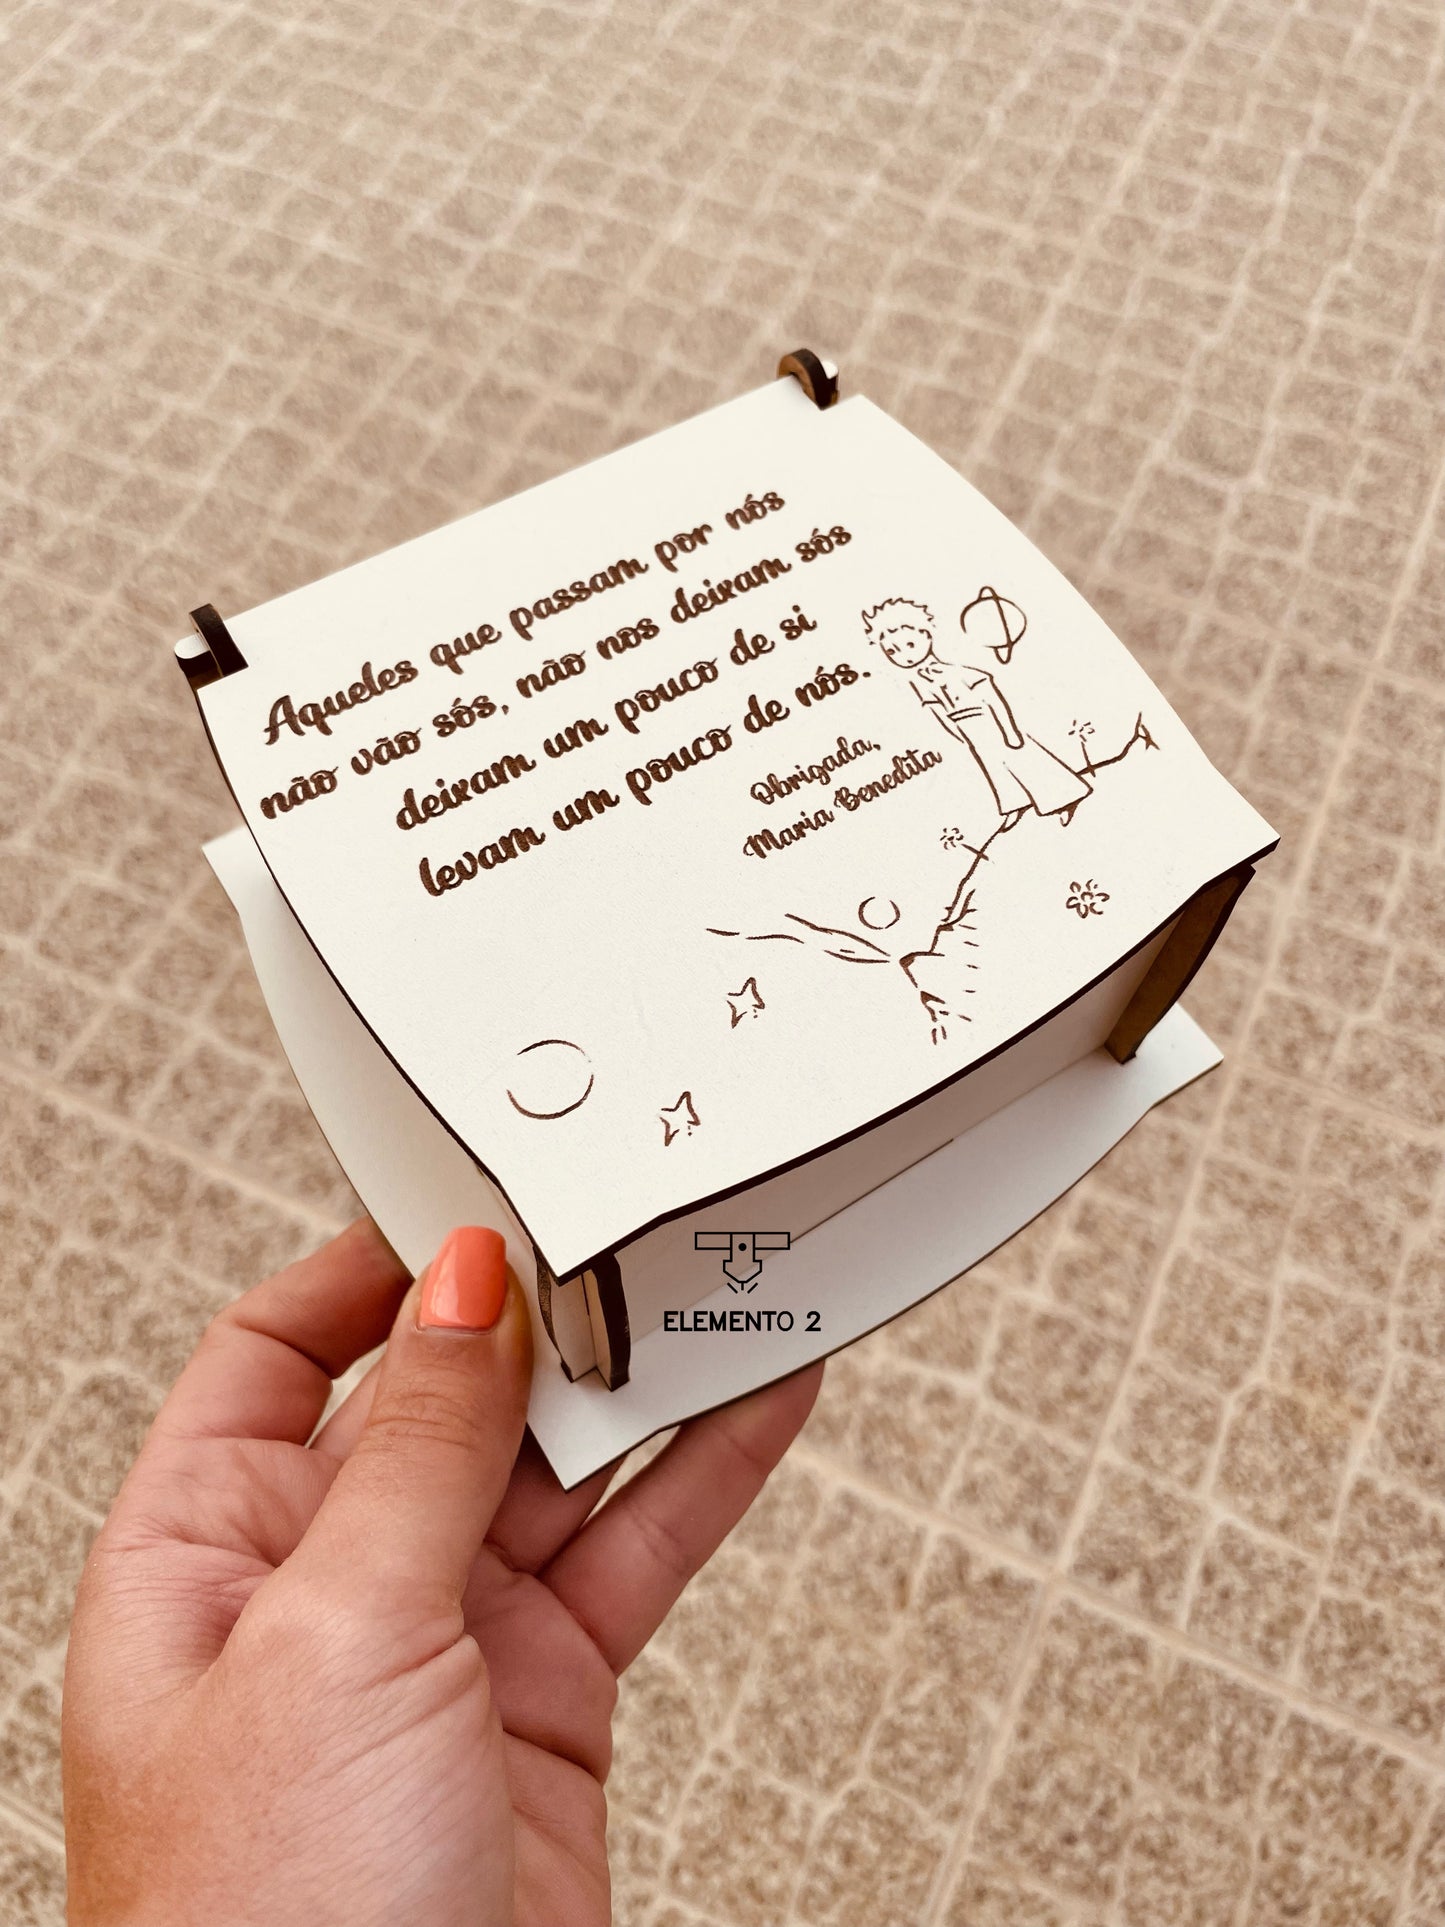 Aqueles que passam por nós
não vão sós, não nos deixam sós
deixam um pouco de si
levam um pouco de nós.
Obrigada,
Maria Benedita
ELEMENTO 2